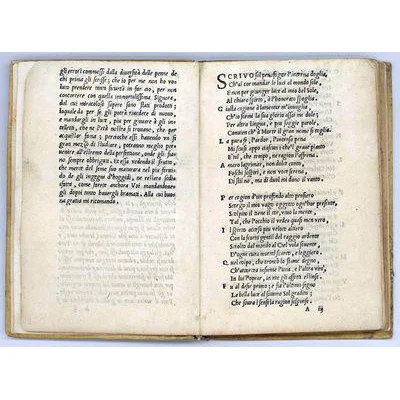 gli errori commessi dalla diuersità delle penne de
chi prima gli scrisse; che io per me no ho uo
luto prendere tanta sicurtà in far cio, per non
concorrere con quella immortalissima Signora,
dal cui miracoloso sapere sono stati prodotti;
et ancora per se gli potrà rimedire di nuouo,
e mandargli in luce, piu per giouare à gli in
telletti, che ne l'età nostra si trouano, che per
accusargli; perche se ben seranno, che con
gran mezzo di illustrare, potranno meglio per
uenire all'estremo della perfettione, onde gli sia
no sempre obbrigati.
che merce del seme suo maturara nel piu
do de gli ingegni d'hoggidi, ne restarà satis
fatto, come farete anchora Voi mandandone
gli dopo tanto hauergli bramati. Alla cui buo
na gratia mi ricomando.
SCRIVO sol per sfogar l'interna doglia,
Ch'al cor mandar le luci al mondo sole,
E non per giunger luce al mio bel Sole,
Al chiaro spirto, e l'honorata spoglia.
Giusta cagion à lamentar m'inuoglia,
Ch'io scemi la sua gloria assai mi dole;
Per altra lingua, e piu saggie parole,
Conuien ch'à Morte il gran nome si toglia.
La pura fe, l'ardor, l'intensa pena
Mi scuse appo ciascun; che'l graue pianto
E tal, che tempo, ne ragion l'affrena.
Amaro lagrimar, non dolce canto,
Foschi sospiri, e non voce serena,
Di stil no, ma di duol mi danno il vanto.
Per cagion d'un profondo alto pensiero
Scorgo il mio vago oggetto ogn'hor presente,
Scolpito il tiene il cor, viuo la mente
Tal, che l'occhio il vedea quasi men vero.
Lo spirto acceso poi veloce altiero
Con la scorta gentil del raggio ardente
Sciolto dal mondo al Ciel vola souente,
D'ogni cura mortal scarco, e leggiero.
Quel colpo; che troncò lo stame degno
Ch'attorcea insieme l'una, e l'altra vita,
In lui l'oprar, in me gli affetti estinse.
Fu al desir primo; e fia l'ultimo segno
La bella luce al sommo Sol gradita;
Che soura i sensi la ragion sospinse.
A iij